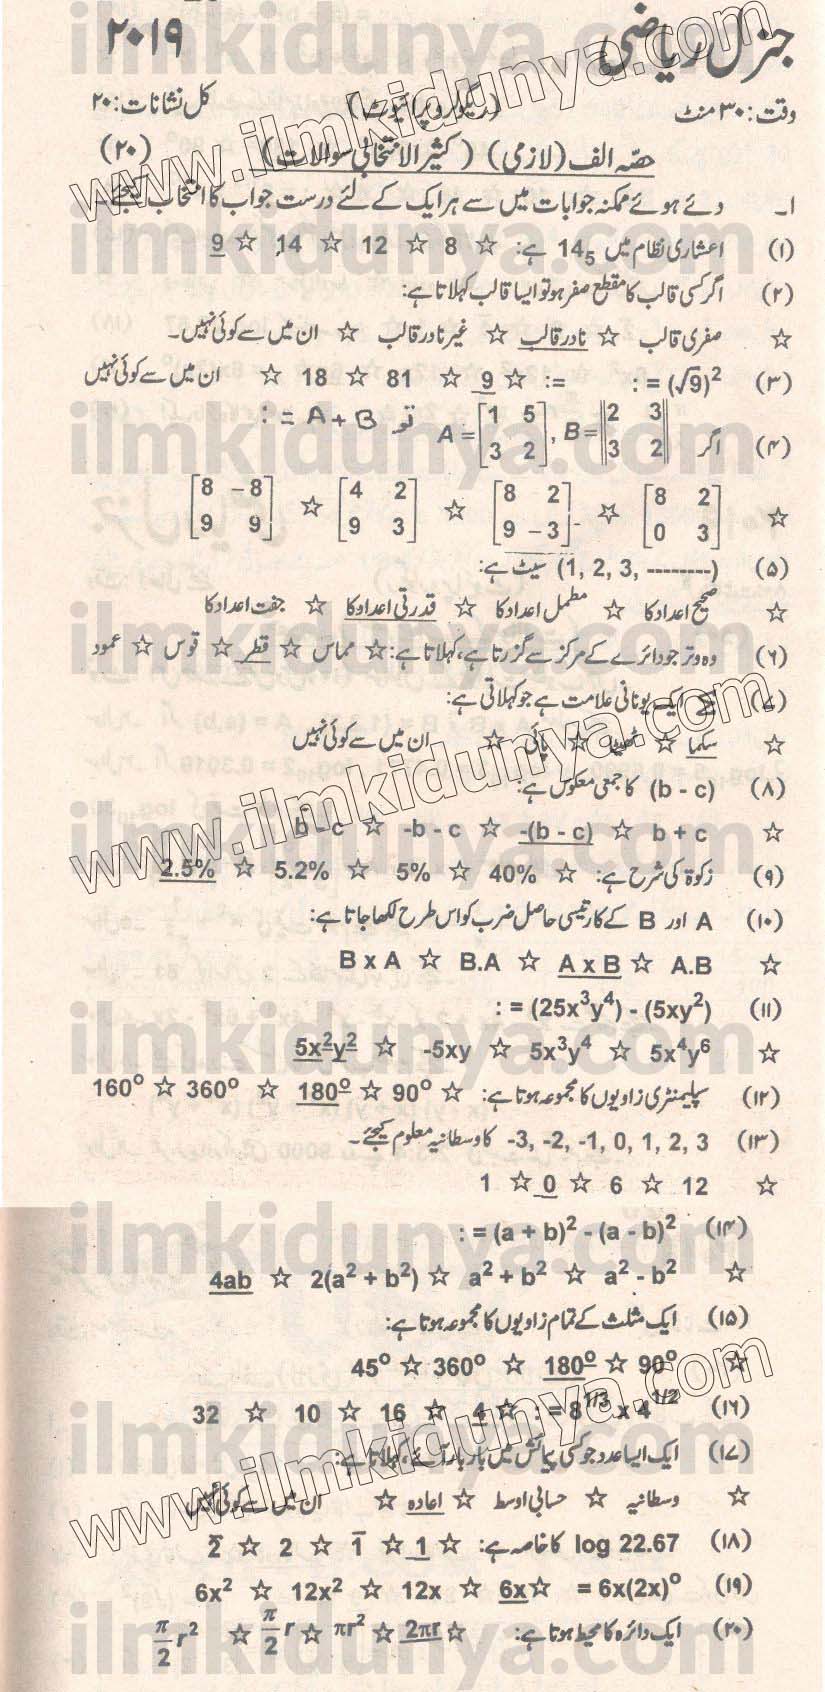 جنرل ریاضی ۲۰۱۹
وقت: ۳۰ منٹ (ریگولر و پرائیوٹ) کل نشانات: ۲۰
حصہ الف (لازمی) (کثیر الانتخابی سوالات) (۲۰)
۱۔ دئے ہوئے ممکنہ جوابات میں سے ہر ایک کے لئے درست جواب کا انتخاب کیجئے۔
(۱) اعشاری نظام میں 14₅ ہے: ☆ 8 ☆ 12 ☆ 14 ☆ 9
(۲) اگر کسی قالب کا مقطع صفر ہو تو ایسا قالب کہلاتا ہے:
☆ صفری قالب ☆ نادر قالب ☆ غیر نادر قالب ☆ ان میں سے کوئی نہیں۔
(۳) (√9)² = : =: ☆ 9 ☆ 81 ☆ 18 ☆ ان میں سے کوئی نہیں
(۴) اگر A = [1 5; 3 2], B = ||2 3; 3 2|| تو A + B = :
☆ [8 2; 0 3] ☆ [8 2; 9 -3] ☆ [4 2; 9 3] ☆ [8 -8; 9 9]
(۵) (1, 2, 3, --------) سیٹ ہے:
☆ صحیح اعداد کا ☆ مکمل اعداد کا ☆ قدرتی اعداد کا ☆ جفت اعداد کا
(۶) وہ وتر جو دائرے کے مرکز سے گزرتا ہے، کہلاتا ہے: ☆ مماس ☆ قطر ☆ قوس ☆ عمود
(۷) ایک یونانی علامت ہے جو کہلاتی ہے:
☆ سگما ☆ تھیٹا ☆ پائی ☆ ان میں سے کوئی نہیں
(۸) (b - c) کا جمعی معکوس ہے:
☆ b + c ☆ -(b - c) ☆ -b - c ☆ b - c
(۹) زکوٰۃ کی شرح ہے: ☆ 40% ☆ 5% ☆ 5.2% ☆ 2.5%
(۱۰) A اور B کے کارتیسی حاصل ضرب کو اس طرح لکھا جاتا ہے:
☆ A.B ☆ A x B ☆ B.A ☆ B x A
(۱۱) (25x³y⁴) - (5xy²) = :
☆ 5x⁴y⁶ ☆ 5x³y⁴ ☆ -5xy ☆ 5x²y²
(۱۲) سپلیمنٹری زاویوں کا مجموعہ ہوتا ہے: ☆ 90° ☆ 180° ☆ 360° ☆ 160°
(۱۳) -3, -2, -1, 0, 1, 2, 3 کا وسطانیہ معلوم کیجئے۔
☆ 12 ☆ 6 ☆ 0 ☆ 1
(۱۴) (a + b)² - (a - b)² = :
☆ a² - b² ☆ a² + b² ☆ 2(a² + b²) ☆ 4ab
(۱۵) ایک مثلث کے تمام زاویوں کا مجموعہ ہوتا ہے:
☆ 90° ☆ 180° ☆ 360° ☆ 45°
(۱۶) 8^1/3 x 4^1/2 = : ☆ 4 ☆ 16 ☆ 10 ☆ 32
(۱۷) ایک ایسا عدد جو کسی پیمائش میں بار بار آئے، کہلاتا ہے:
☆ وسطانیہ ☆ حسابی اوسط ☆ اعادہ ☆ ان میں سے کوئی نہیں
(۱۸) log 22.67 کا خاصہ ہے: ☆ 1 ☆ 1̄ ☆ 2 ☆ 2̄
(۱۹) 6x(2x)⁰ = ☆ 6x ☆ 12x ☆ 12x² ☆ 6x²
(۲۰) ایک دائرہ کا محیط ہوتا ہے: ☆ 2πr ☆ πr² ☆ π/2 r ☆ π/2 r²
www.ilmkidunya.com
www.ilmkidunya.com
www.ilmkidunya.com
ilmkidunya.com
ilmkidunya.com
ilmkidunya.com
ilmkidunya.com
ilmkidunya.com
ilmkidunya.com
ilmkidunya.com
ilmkidunya.com
ilmkidunya.com